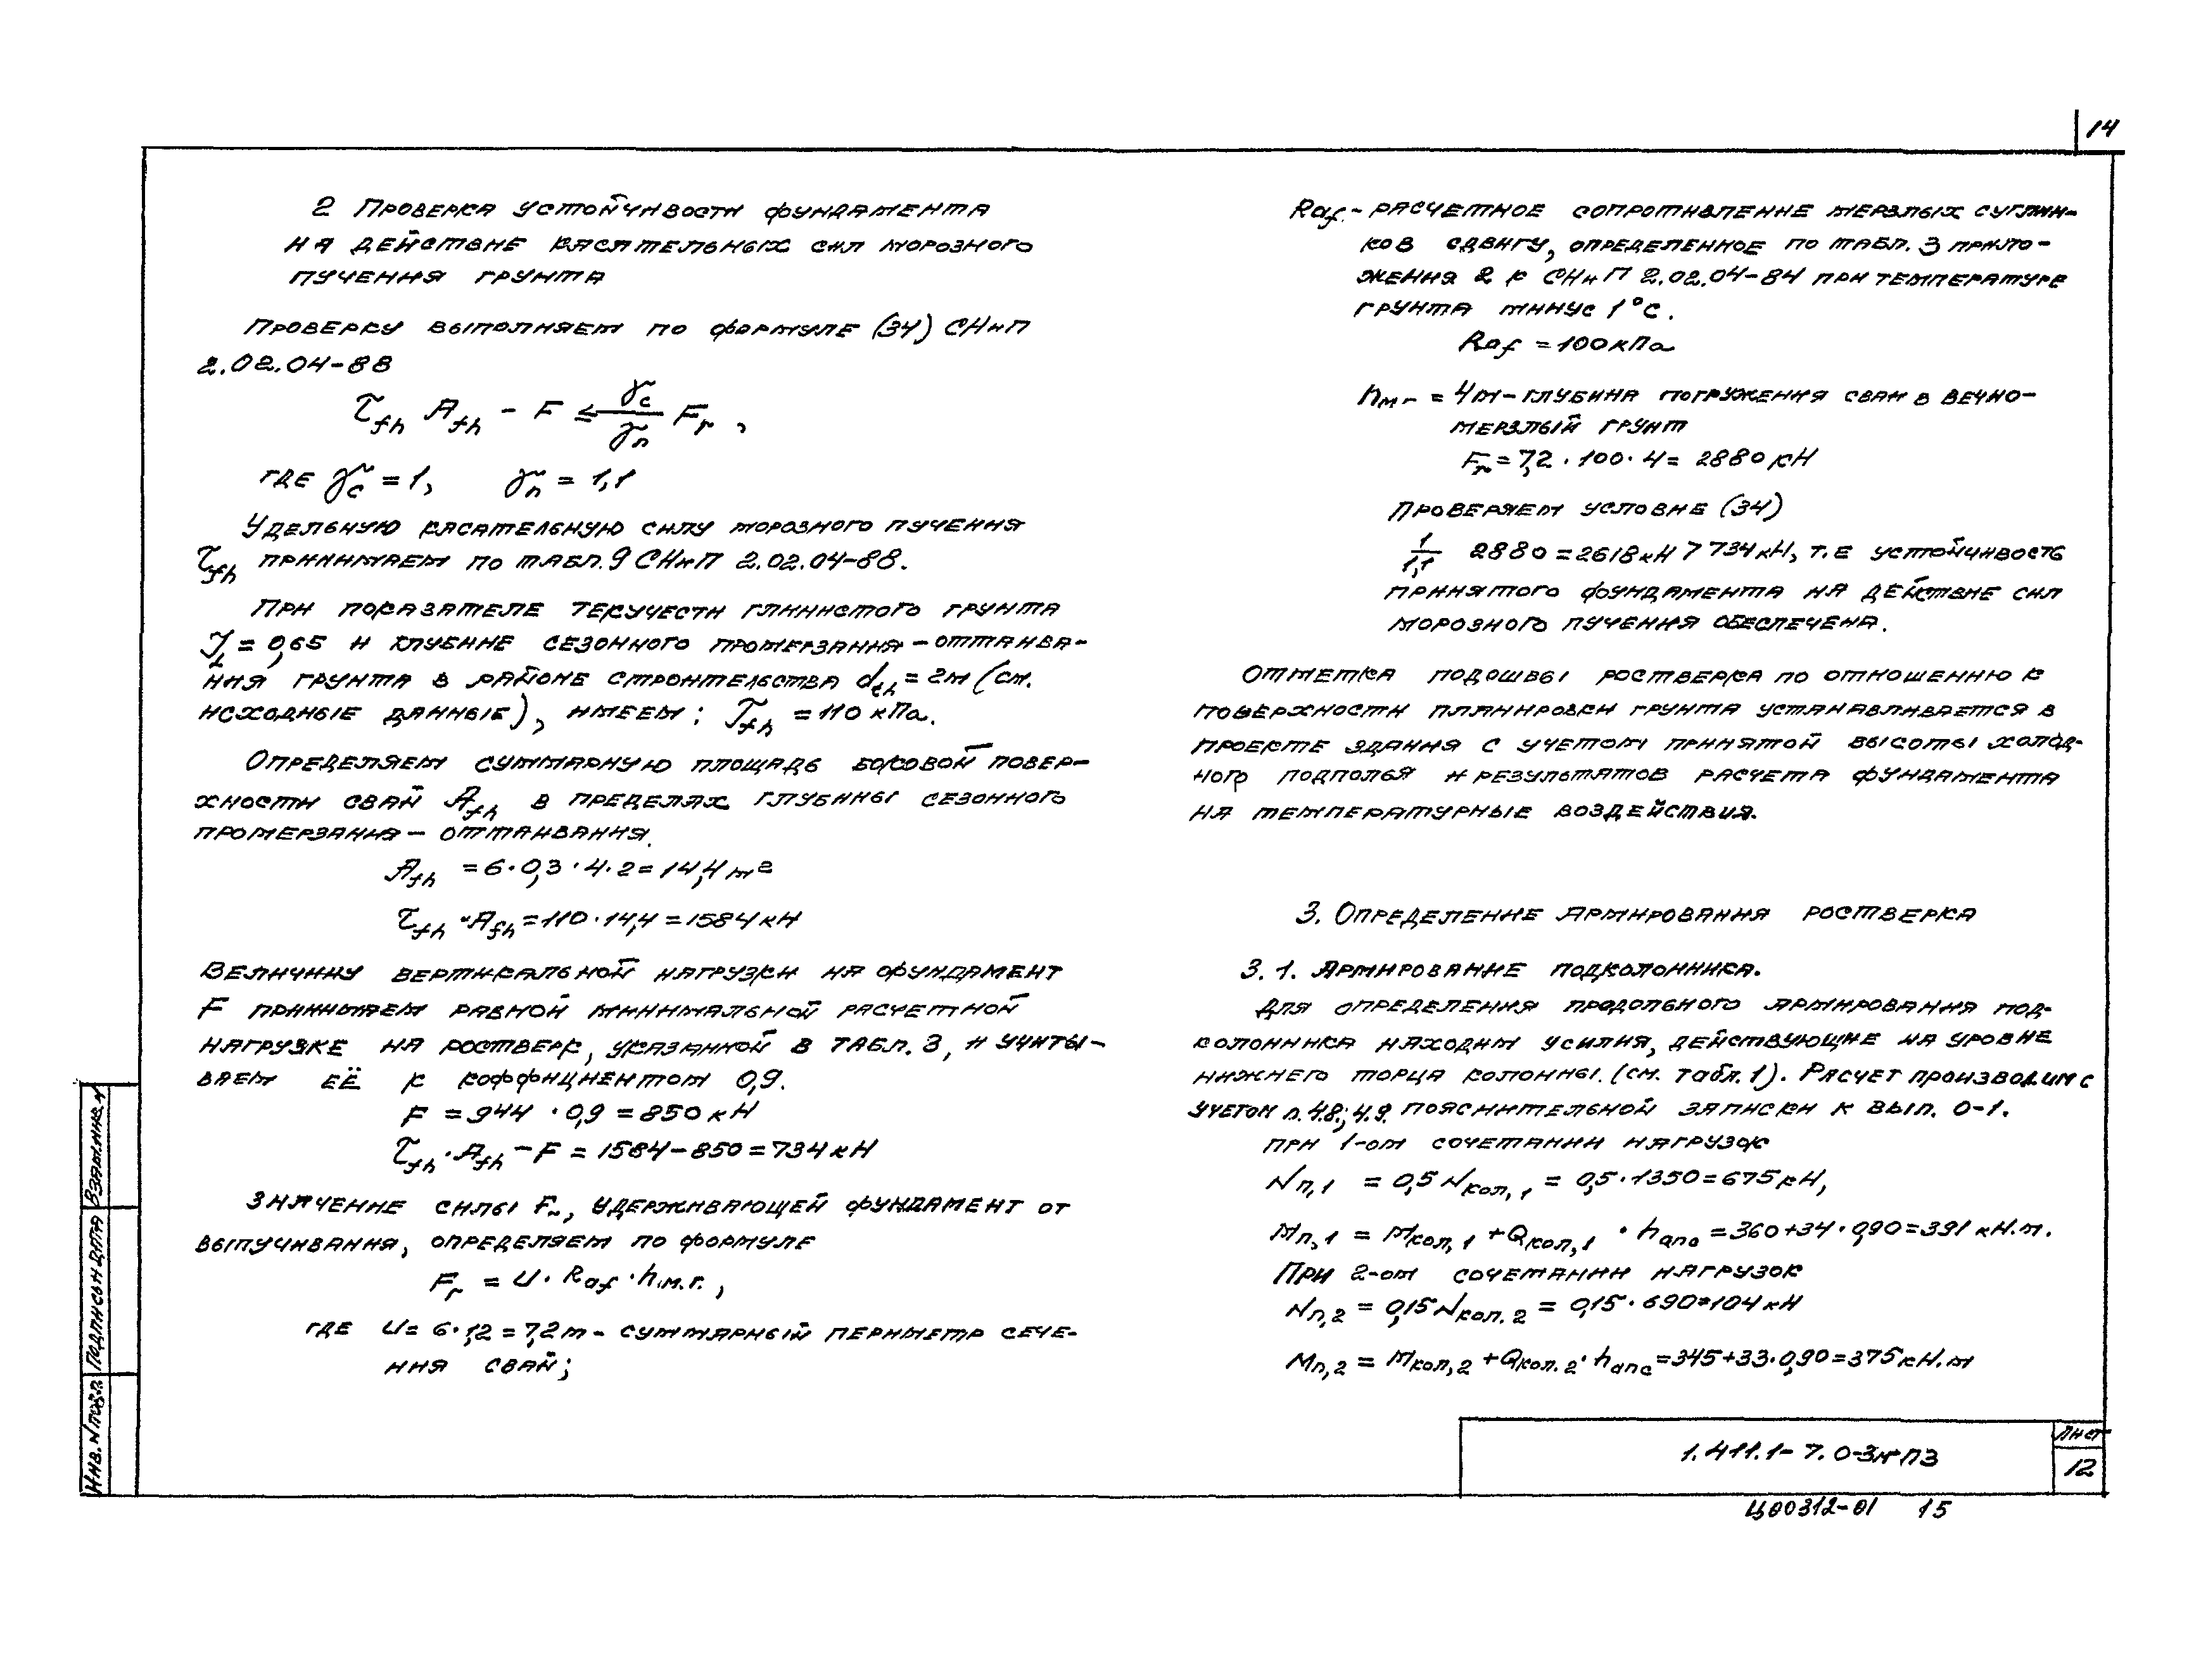 14
2 Проверка устойчивости фундамента
на действие касательных сил морозного
пучения грунта
Проверку выполняем по формуле (34) СНиП
2.02.04-88
τfh Afh - F ≤ γc/γn Fr ,
где γc = 1, γn = 1,1
Удельную касательную силу морозного пучения
τfh принимаем по табл. 9 СНиП 2.02.04-88.
При показателе текучести глинистого грунта
JL = 0,65 и глубине сезонного промерзания - оттаива-
ния грунта в районе строительства dth = 2м (см.
исходные данные), имеем: τfh = 110 кПа.
Определяем суммарную площадь боковой повер-
хности свай Afh в пределах глубины сезонного
промерзания - оттаивания.
Afh = 6·0,3·4·2 = 14,4 м²
τfh · Afh = 110·14,4 = 1584 кН
Величину вертикальной нагрузки на фундамент
F принимаем равной минимальной расчетной
нагрузке на ростверк, указанной в табл. 3, и учиты-
ваем её к коффициентом 0,9.
F = 944 · 0,9 = 850 кН
τfh · Afh - F = 1584 - 850 = 734 кН
Значение силы Fr, удерживающей фундамент от
выпучивания, определяем по формуле
Fr = U · Raf · hм.г. ,
где U = 6·1,2 = 7,2 м - суммарный периметр сече-
ния свай;
Raf - расчетное сопротивление мерзлых суглин-
ков сдвигу, определенное по табл. 3 прило-
жения 2 к СНиП 2.02.04-84 при температуре
грунта минус 1°С.
Raf = 100 кПа
hм г = 4м - глубина погружения сваи в вечно-
мерзлый грунт
Fr = 7,2 · 100 · 4 = 2880 кН
Проверяем условие (34)
1/1,1 2880 = 2618 кН > 734 кН, т.е устойчивость
принятого фундамента на действие сил
морозного пучения обеспечена.
Отметка подошвы ростверка по отношению к
поверхности планировки грунта устанавливается в
проекте здания с учетом принятой высоты холод-
ного подполья и результатов расчета фундамента
на температурные воздействия.
3. Определение армирования ростверка
3.1. Армирование подколонника.
Для определения продольного армирования под-
колонника находим усилия, действующие на уровне
нижнего торца колонны. (см. табл. 1). Расчет производим с
учетом п. 4.8; 4.9. пояснительной записки к вып. 0-1.
при 1-ом сочетании нагрузок
Nп,1 = 0,5 Nкол,1 = 0,5 · 1350 = 675 кН,
Mп,1 = Mкол,1 + Qкол,1 · hапс = 360+34 · 0,90 = 391 кН.м.
При 2-ом сочетании нагрузок
Nп,2 = 0,15 Nкол.2 = 0,15 · 690 = 104 кН
Mп,2 = Mкол,2 + Qкол.2 · hапс = 345+33·0,90 = 375 кН.м
Инв. № подл. Подпись и дата Взам. инв. №
1.411.1-7.0-3м-ПЗ
Лист
12
Ц00312-01 15